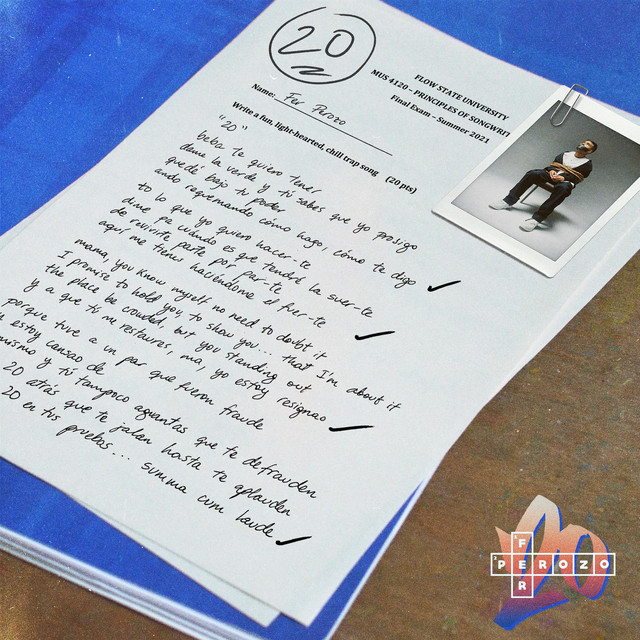 20
FLOW STATE UNIVERSITY
MUS 4120 – PRINCIPLES OF SONGWRI
Final Exam – Summer 2021
Name: Fer Perozo
Write a fun, light-hearted, chill trap song (20 pts)
"20"
bebe te quiero tener
dame la verde y tú sabes que yo prosigo
quedé bajo tu poder
ando requemando cómo hago, cómo te digo
to lo que yo quiero hacer-te
dime pa cuándo es que tendré la suer-te
de revivirte parte por par-te
aquí me tienes haciéndome el fuer-te
mama, you know myself no need to doubt it
I promise to hold you, to show you... that I'm about it
the place be crowded, but you standing out
y a que tú me restaures, ma, yo estoy resignao
porque tuve a un par que fueron fraude
estoy cansao de
mismo y tú tampoco aguantas que te defrauden
20 atrás que te jalan hasta te aplauden
20 en tus pruebas... summa cum laude
20
FER
PEROZO